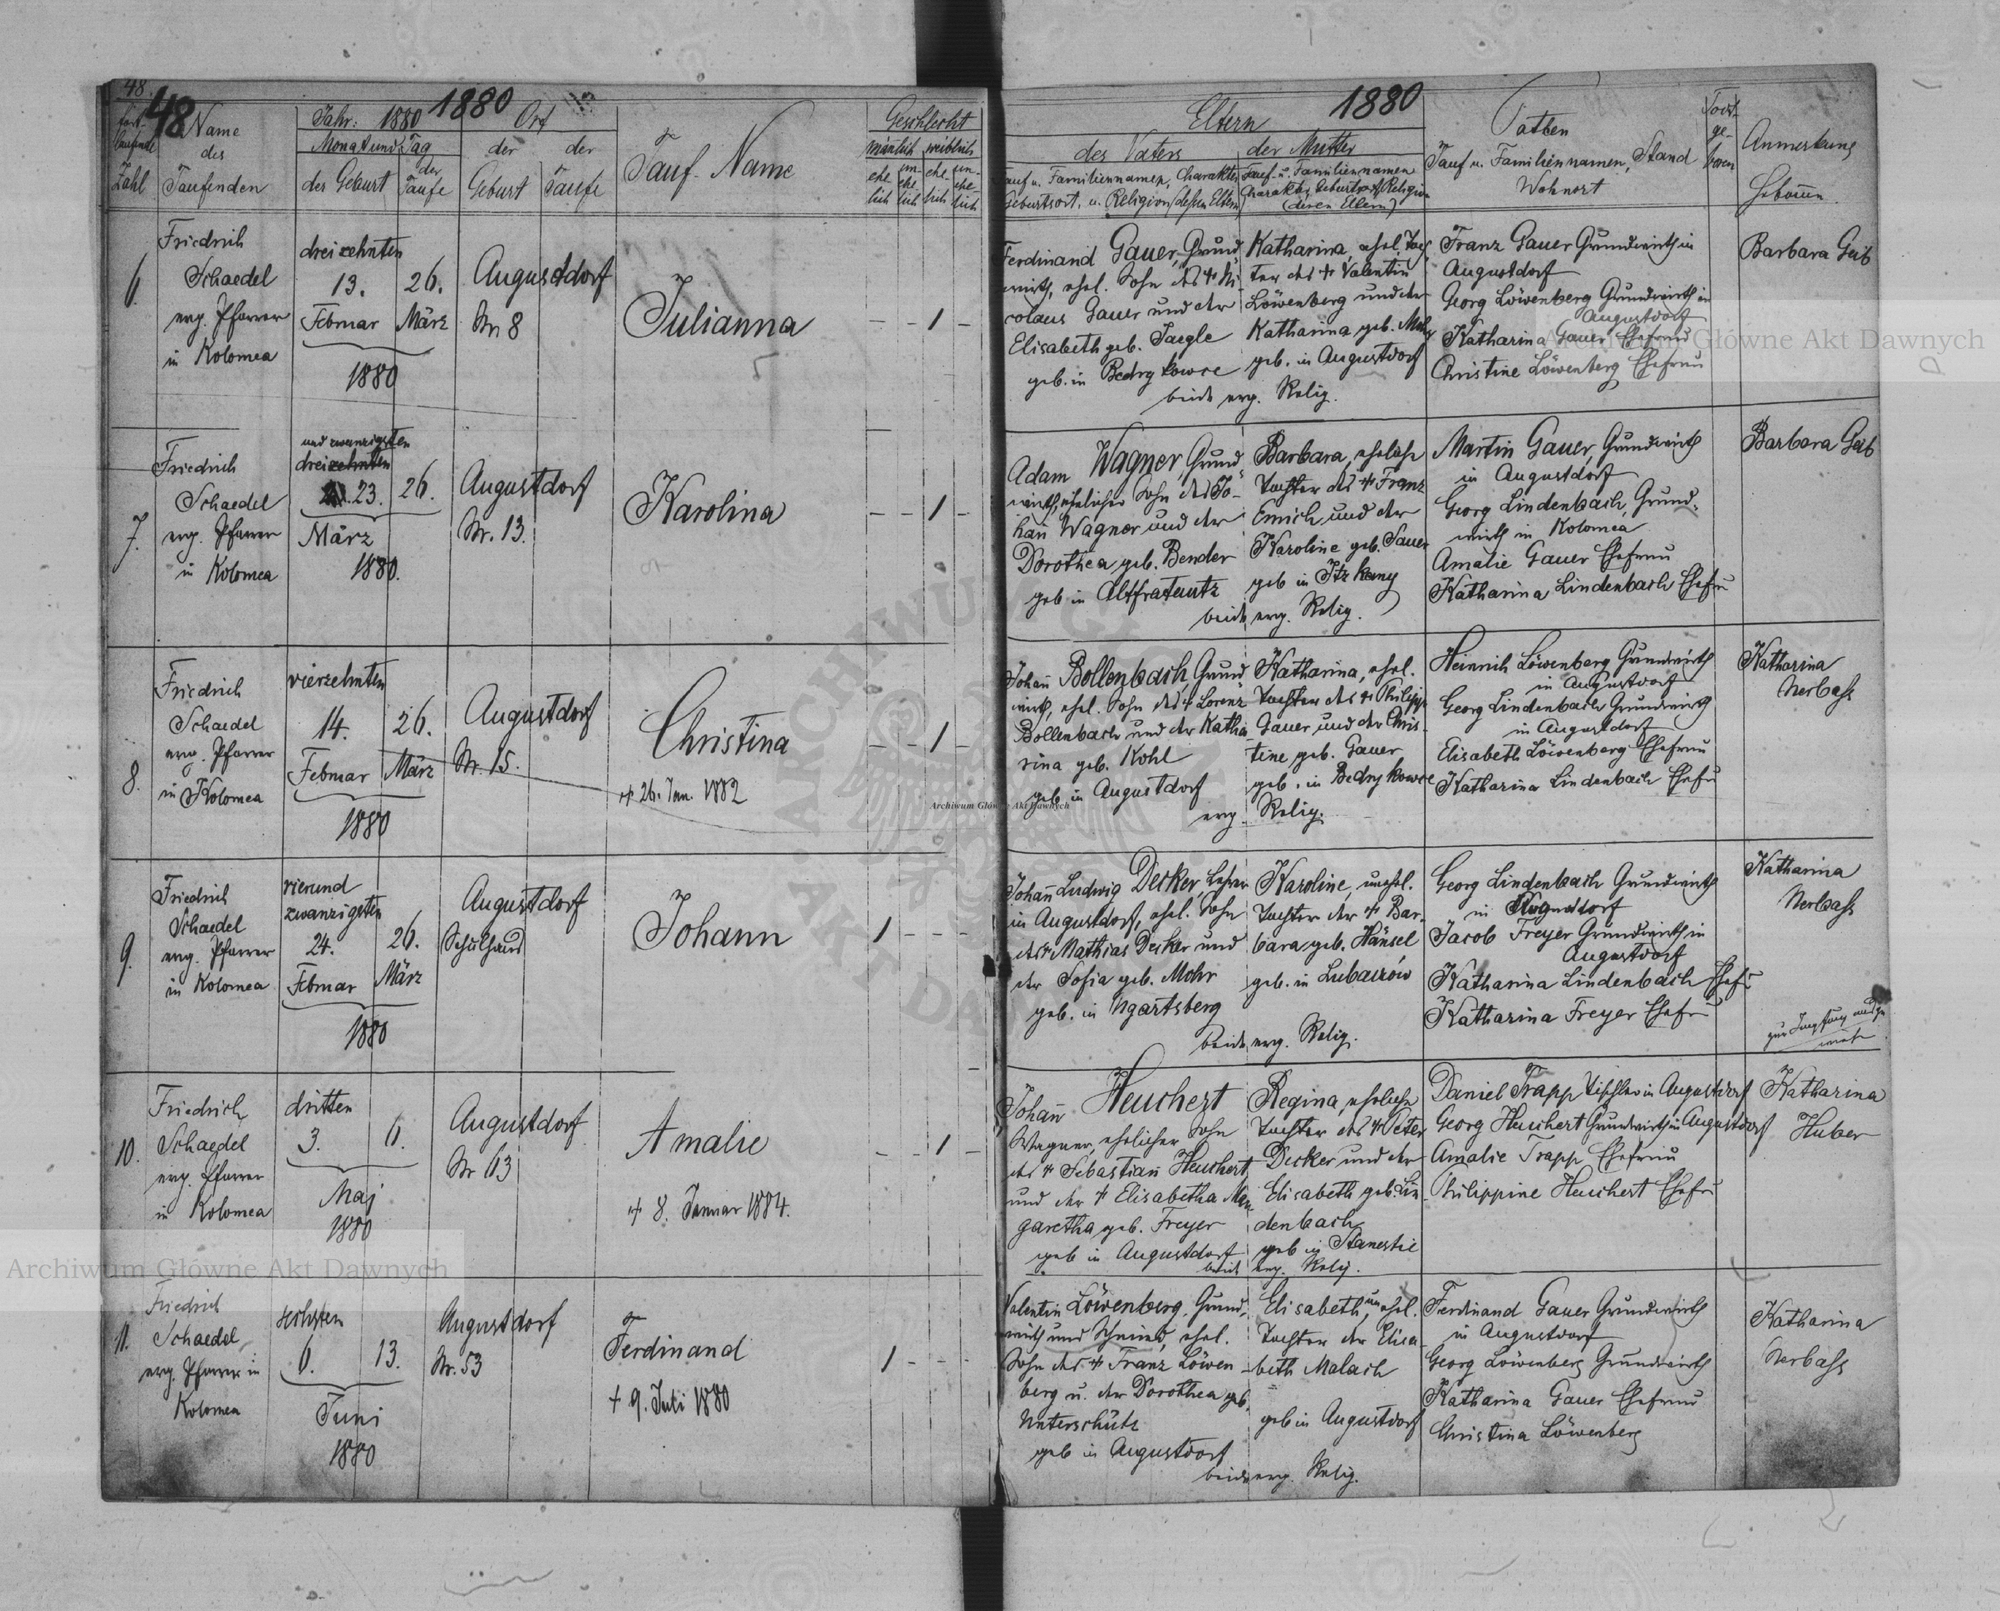 48.
48
1880
Fort-
laufende
Zahl
Name
des
Taufenden
Jahr: 1880
Monat und Tag
der Geburt
der
Taufe
Ort
der
Geburt
der
Taufe
Tauf-Name
Geschlecht
männlich
weiblich
ehe-
lich
un-
ehe-
lich
ehe-
lich
un-
ehe-
lich
1880
Eltern
des Vaters
Tauf u. Familiennamen, Charakter
Geburtsort, u. Religion (dessen Eltern)
der Mutter
Tauf- u. Familiennamen
Charakter, Geburtsort, Religion
(deren Eltern)
Pathen
Tauf u. Familiennamen, Stand
Wohnort
Todt-
ge-
boren
Anmerkung
Hebamme
6.
Friedrich
Schaedel
evg. Pfarrer
in Kolomea
dreizehnten
13.
Februar
26.
März
1880
Augustdorf
Nr 8
Julianna
- - 1 -
Ferdinand Gauer, Grund-
wirth, ehel. Sohn des + Ni-
colaus Gauer und der
Elisabeth geb. Jaegle
geb. in Bedrykowce
Katharina, ehel. Toch-
ter des + Valentin
Löwenberg und der
Katharina geb. Mohr
geb. in Augustdorf
beide evg. Relig.
Franz Gauer Grundwirth in
Augustdorf
Georg Löwenberg Grundwirth in
Augustdorf
Katharina Gauer Ehefrau
Christine Löwenberg Ehefrau
Barbara Geib
7.
Friedrich
Schaedel
evg. Pfarrer
in Kolomea
und zwanzigsten
dreizehnten
23.
März
26.
1880.
Augustdorf
Nr. 13.
Karolina
- - 1 -
Adam Wagner, Grund-
wirth, ehelicher Sohn des Jo-
han Wagner und der
Dorothea geb. Bender
geb in Altfratautz
Barbara, eheliche
Tochter des + Franz
Emich und der
Karoline geb. Sauer
geb in Itzkany
beide evg. Relig.
Martin Gauer, Grundwirth
in Augustdorf
Georg Lindenbach, Grund-
wirth in Kolomea
Amalie Gauer Ehefrau
Katharina Lindenbach Ehefr
Barbara Geib
8.
Friedrich
Schaedel
evg. Pfarrer
in Kolomea
vierzehnten
14.
Februar
26.
März
1880
Augustdorf
Nr. 15.
Christina
+ 26. Jan. 1882
- - 1 -
Johan̄ Bollenbach, Grund-
wirth, ehel. Sohn des + Lorenz
Bollenbach und der Katha-
rina geb. Kohl
geb in Augustdorf
Katharina, ehel.
Tochter des + Philipp
Gauer und der Chris-
tine geb. Gauer
geb. in Bedrykowce
evg. Relig.
Heinrich Löwenberg Grundwirth
in Augustdorf
Georg Lindenbach Grundwirth
in Augustdorf
Elisabeth Löwenberg Ehefrau
Katharina Lindenbach Ehefr
Katharina
Nerbass
9.
Friedrich
Schaedel
evg. Pfarrer
in Kolomea
vierund
zwanzigsten
24.
Februar
26.
März
1880
Augustdorf
Schulhaus
Johann
1 - - -
Johan̄ Ludwig Decker, Lehrer
in Augustdorf, ehel. Sohn
des + Mathias Decker und
der Sofia geb. Mohr
geb. in Ugartsberg
Karoline, unehel.
Tochter der + Bar-
bara geb. Hänsel
geb. in Lubaczów
beide evg. Relig.
Georg Lindenbach Grundwirth
in Augustdorf
Jacob Freyer Grundwirth in
Augustdorf
Katharina Lindenbach Ehefr
Katharina Freyer Ehefr
Katharina
Nerbass
10.
Friedrich
Schaedel
evg. Pfarrer
in Kolomea
dritten
3.
6.
Maj
1880
Augustdorf
Nr 63
Amalie
+ 8. Januar 1884.
- - 1 -
Johan̄ Heuchert
Wagner, ehelicher Sohn
des + Sebastian Heuchert
und der + Elisabetha Mar-
garetha geb. Freyer
geb in Augustdorf
Regina, eheliche
Tochter des + Peter
Decker und der
Elisabeth geb. Lin-
denbach
geb in Stanestie
beide evg. Relig.
Daniel Trapp Tischler in Augustdorf
Georg Heuchert Grundwirth in Augustdorf
Amalie Trapp Ehefrau
Philippine Heuchert Ehefr
Katharina
Huber
11.
Friedrich
Schaedel,
evg. Pfarrer in
Kolomea
sechsten
6.
13.
Juni
1880
Augustdorf
Nr. 53
Ferdinand
+ 9. Juli 1880
1 - - -
Valentin Löwenberg, Grund-
wirth und Schmied, ehel.
Sohn des + Franz Löwen-
berg u. der Dorothea geb.
Unterschütz
geb in Augustdorf
Elisabeth, unehel.
Tochter der Elisa-
beth Malach
geb in Augustdorf
beide evg. Relig.
Ferdinand Gauer Grundwirth
in Augustdorf
Georg Löwenberg Grundwirth
Katharina Gauer Ehefrau
Christina Löwenberg
Katharina
Nerbass
Archiwum Główne Akt Dawnych
Archiwum Główne Akt Dawnych
Archiwum Główne Akt Dawnych